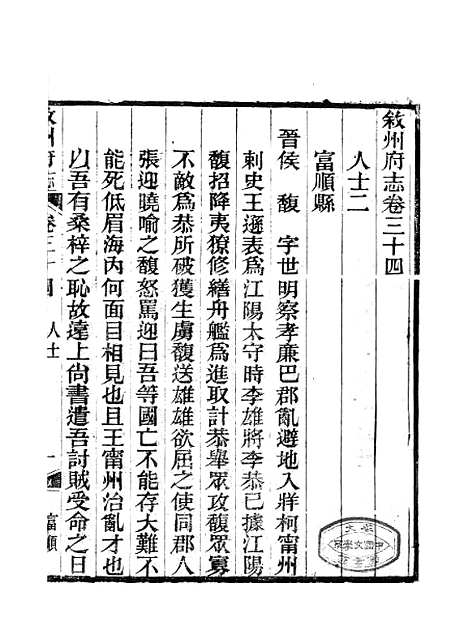 敘州府志卷三十四
人士二
富順縣
晉侯　馥　字世明察孝廉巴郡亂避地入牂柯甯州
刺史王遜表爲江陽太守時李雄將李恭已據江陽
馥招降夷獠修繕舟艦爲進取計恭舉眾攻馥眾寡
不敵爲恭所破獲生虜馥送雄雄欲屈之使同郡人
張迎曉喻之馥怒罵迎曰吾等國亡不能存大難不
能死低眉海內何面目相見也且王甯州治亂才也
以吾有桑梓之恥故遠上尙書遣吾討賊受命之日
敘州府志　卷三十四　人士　一　富順